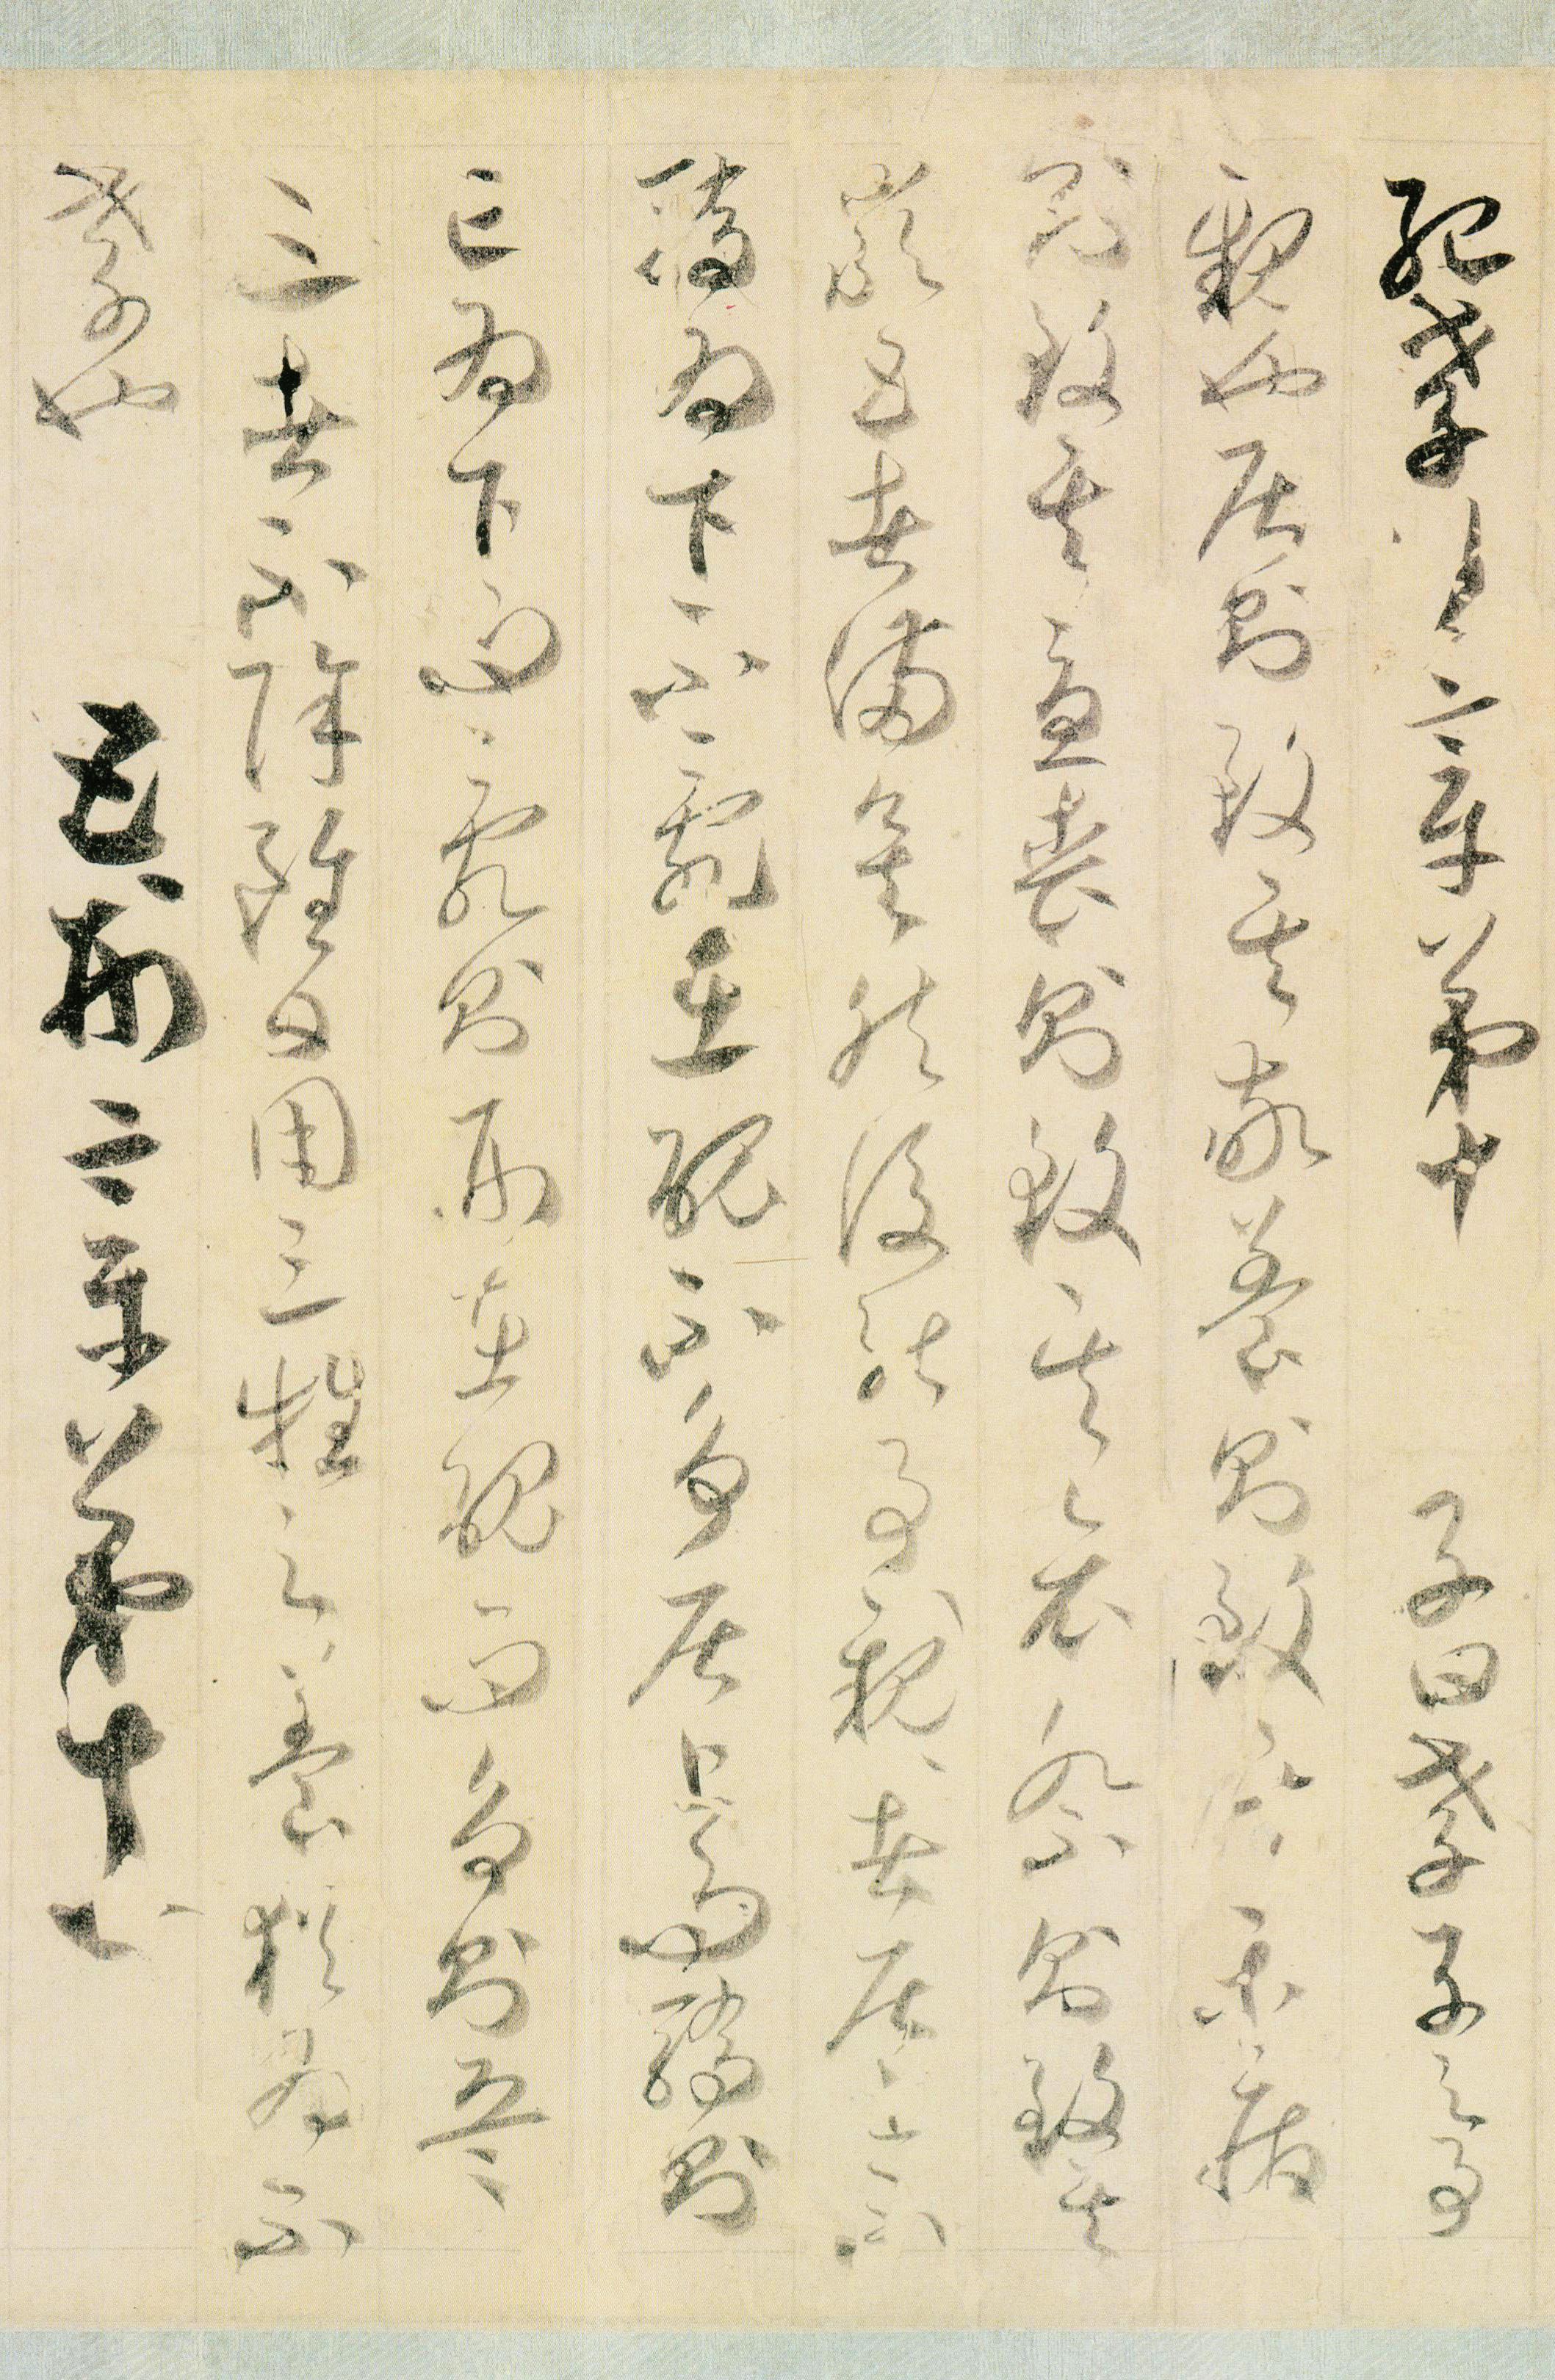 紀孝行章第十 子曰孝子之事
親也居則致其敬養則致其樂病
則致其憂喪則致其哀祭則致其
嚴五者備矣然後能事親者居上不
驕為下不亂在醜不爭居上而驕則
亡為下而亂則刑在醜而爭則兵
三者不除雖日用三牲之養猶為不
孝也 五刑章第十一